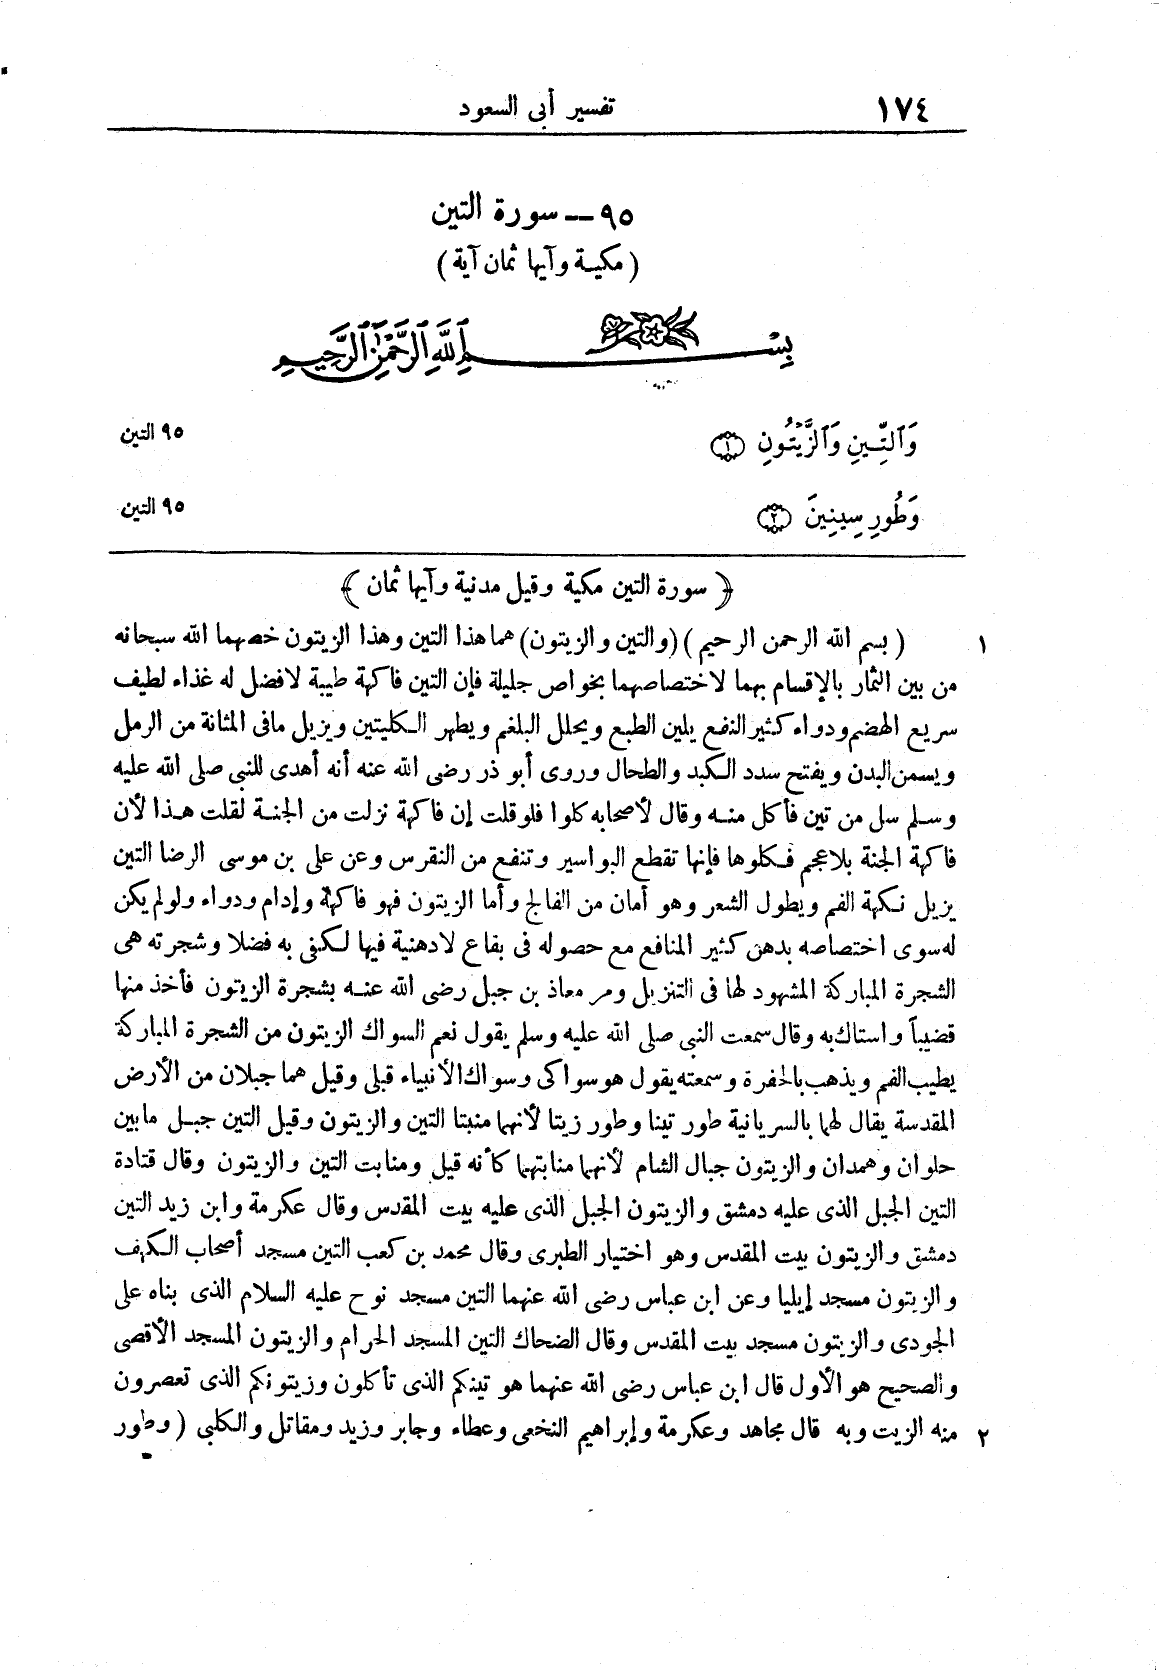 ١٧٤ تفسير أبى السعود
٩٥ — سورة التين
( مكية وآيها ثمان آية )
بِسْمِ ٱللَّهِ ٱلرَّحْمَٰنِ ٱلرَّحِيمِ
وَٱلتِّينِ وَٱلزَّيْتُونِ ﴿١﴾ ٩٥ التين
وَطُورِ سِينِينَ ﴿٢﴾ ٩٥ التين
﴿ سورة التين مكية وقيل مدنية وآيها ثمان ﴾
١ ( بسم الله الرحمن الرحيم ) (والتين والزيتون) هما هذا التين وهذا الزيتون خصهما الله سبحانه
من بين الثمار بالإقسام بهما لاختصاصهما بخواص جليلة فإن التين فاكهة طيبة لا فضل له غذاء لطيف
سريع الهضم ودواء كثير النفع يلين الطبع ويحلل البلغم ويطهر الكليتين ويزيل مافى المثانة من الرمل
ويسمن البدن ويفتح سدد الكبد والطحال وروى أبو ذر رضى الله عنه أنه أهدى للنبى صلى الله عليه
وسلم سل من تين فأكل منه وقال لأصحابه كلوا فلو قلت إن فاكهة نزلت من الجنة لقلت هذا لأن
فاكهة الجنة بلا عجم فكلوها فإنها تقطع البواسير وتنفع من النقرس وعن على بن موسى الرضا التين
يزيل نكهة الفم ويطول الشعر وهو أمان من الفالج وأما الزيتون فهو فاكهة وإدام ودواء ولو لم يكن
له سوى اختصاصه بدهن كثير المنافع مع حصوله فى بقاع لا دهنية فيها لكفى به فضلا وشجرته هى
الشجرة المباركة المشهود لها فى التنزيل ومر معاذ بن جبل رضى الله عنه بشجرة الزيتون فأخذ منها
قضيباً واستاك به وقال سمعت النبى صلى الله عليه وسلم يقول نعم السواك الزيتون من الشجرة المباركة
يطيب الفم ويذهب بالحفرة وسمعته يقول هو سواكى وسواك الأنبياء قبلى وقيل هما جبلان من الأرض
المقدسة يقال لهما بالسريانية طور تينا وطور زيتا لأنهما منبتا التين والزيتون وقيل التين جبل ما بين
حلوان وهمدان والزيتون جبال الشام لأنهما منابتهما كأنه قيل ومنابت التين والزيتون وقال قتادة
التين الجبل الذى عليه دمشق والزيتون الجبل الذى عليه بيت المقدس وقال عكرمة وابن زيد التين
دمشق والزيتون بيت المقدس وهو اختيار الطبرى وقال محمد بن كعب التين مسجد أصحاب الكهف
والزيتون مسجد إيليا وعن ابن عباس رضى الله عنهما التين مسجد نوح عليه السلام الذى بناه على
الجودى والزيتون مسجد بيت المقدس وقال الضحاك التين المسجد الحرام والزيتون المسجد الأقصى
والصحيح هو الأول قال ابن عباس رضى الله عنهما هو تينكم الذى تأكلون وزيتونكم الذى تعصرون
٢ منه الزيت وبه قال مجاهد وعكرمة وإبراهيم النخعى وعطاء وجابر وزيد ومقاتل والكلبى ( وطور